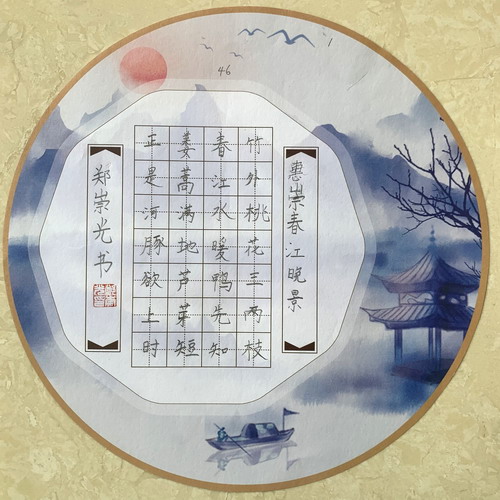 46
惠崇春江晚景
竹外桃花三两枝
春江水暖鸭先知
蒌蒿满地芦芽短
正是河豚欲上时
郑崇光书